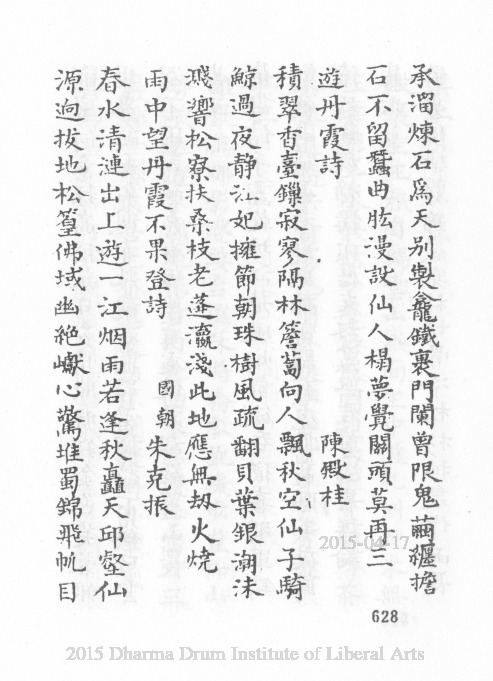 承溜煉石為天別製龕鐵裹門闌曾限鬼繭纏擔
石不留蠶曲肱漫設仙人榻夢覺關頭莫再三
遊丹霞詩 陳殿桂
積翠香臺鏁寂寥隔林簷蔔向人飄秋空仙子騎
鯨過夜静江妃擁節朝珠樹風疏翻貝葉銀潮沫
濺響松寮扶桑枝老蓬瀛淺此地應無劫火燒
雨中望丹霞不果登詩 國朝 朱克振
春水清漣出上遊一江烟雨若逢秋矗天邱壑仙
源逈拔地松篁佛域幽絶巘心驚堆蜀錦飛帆目
628
2015-04-17
2015 Dharma Drum Institute of Liberal Arts